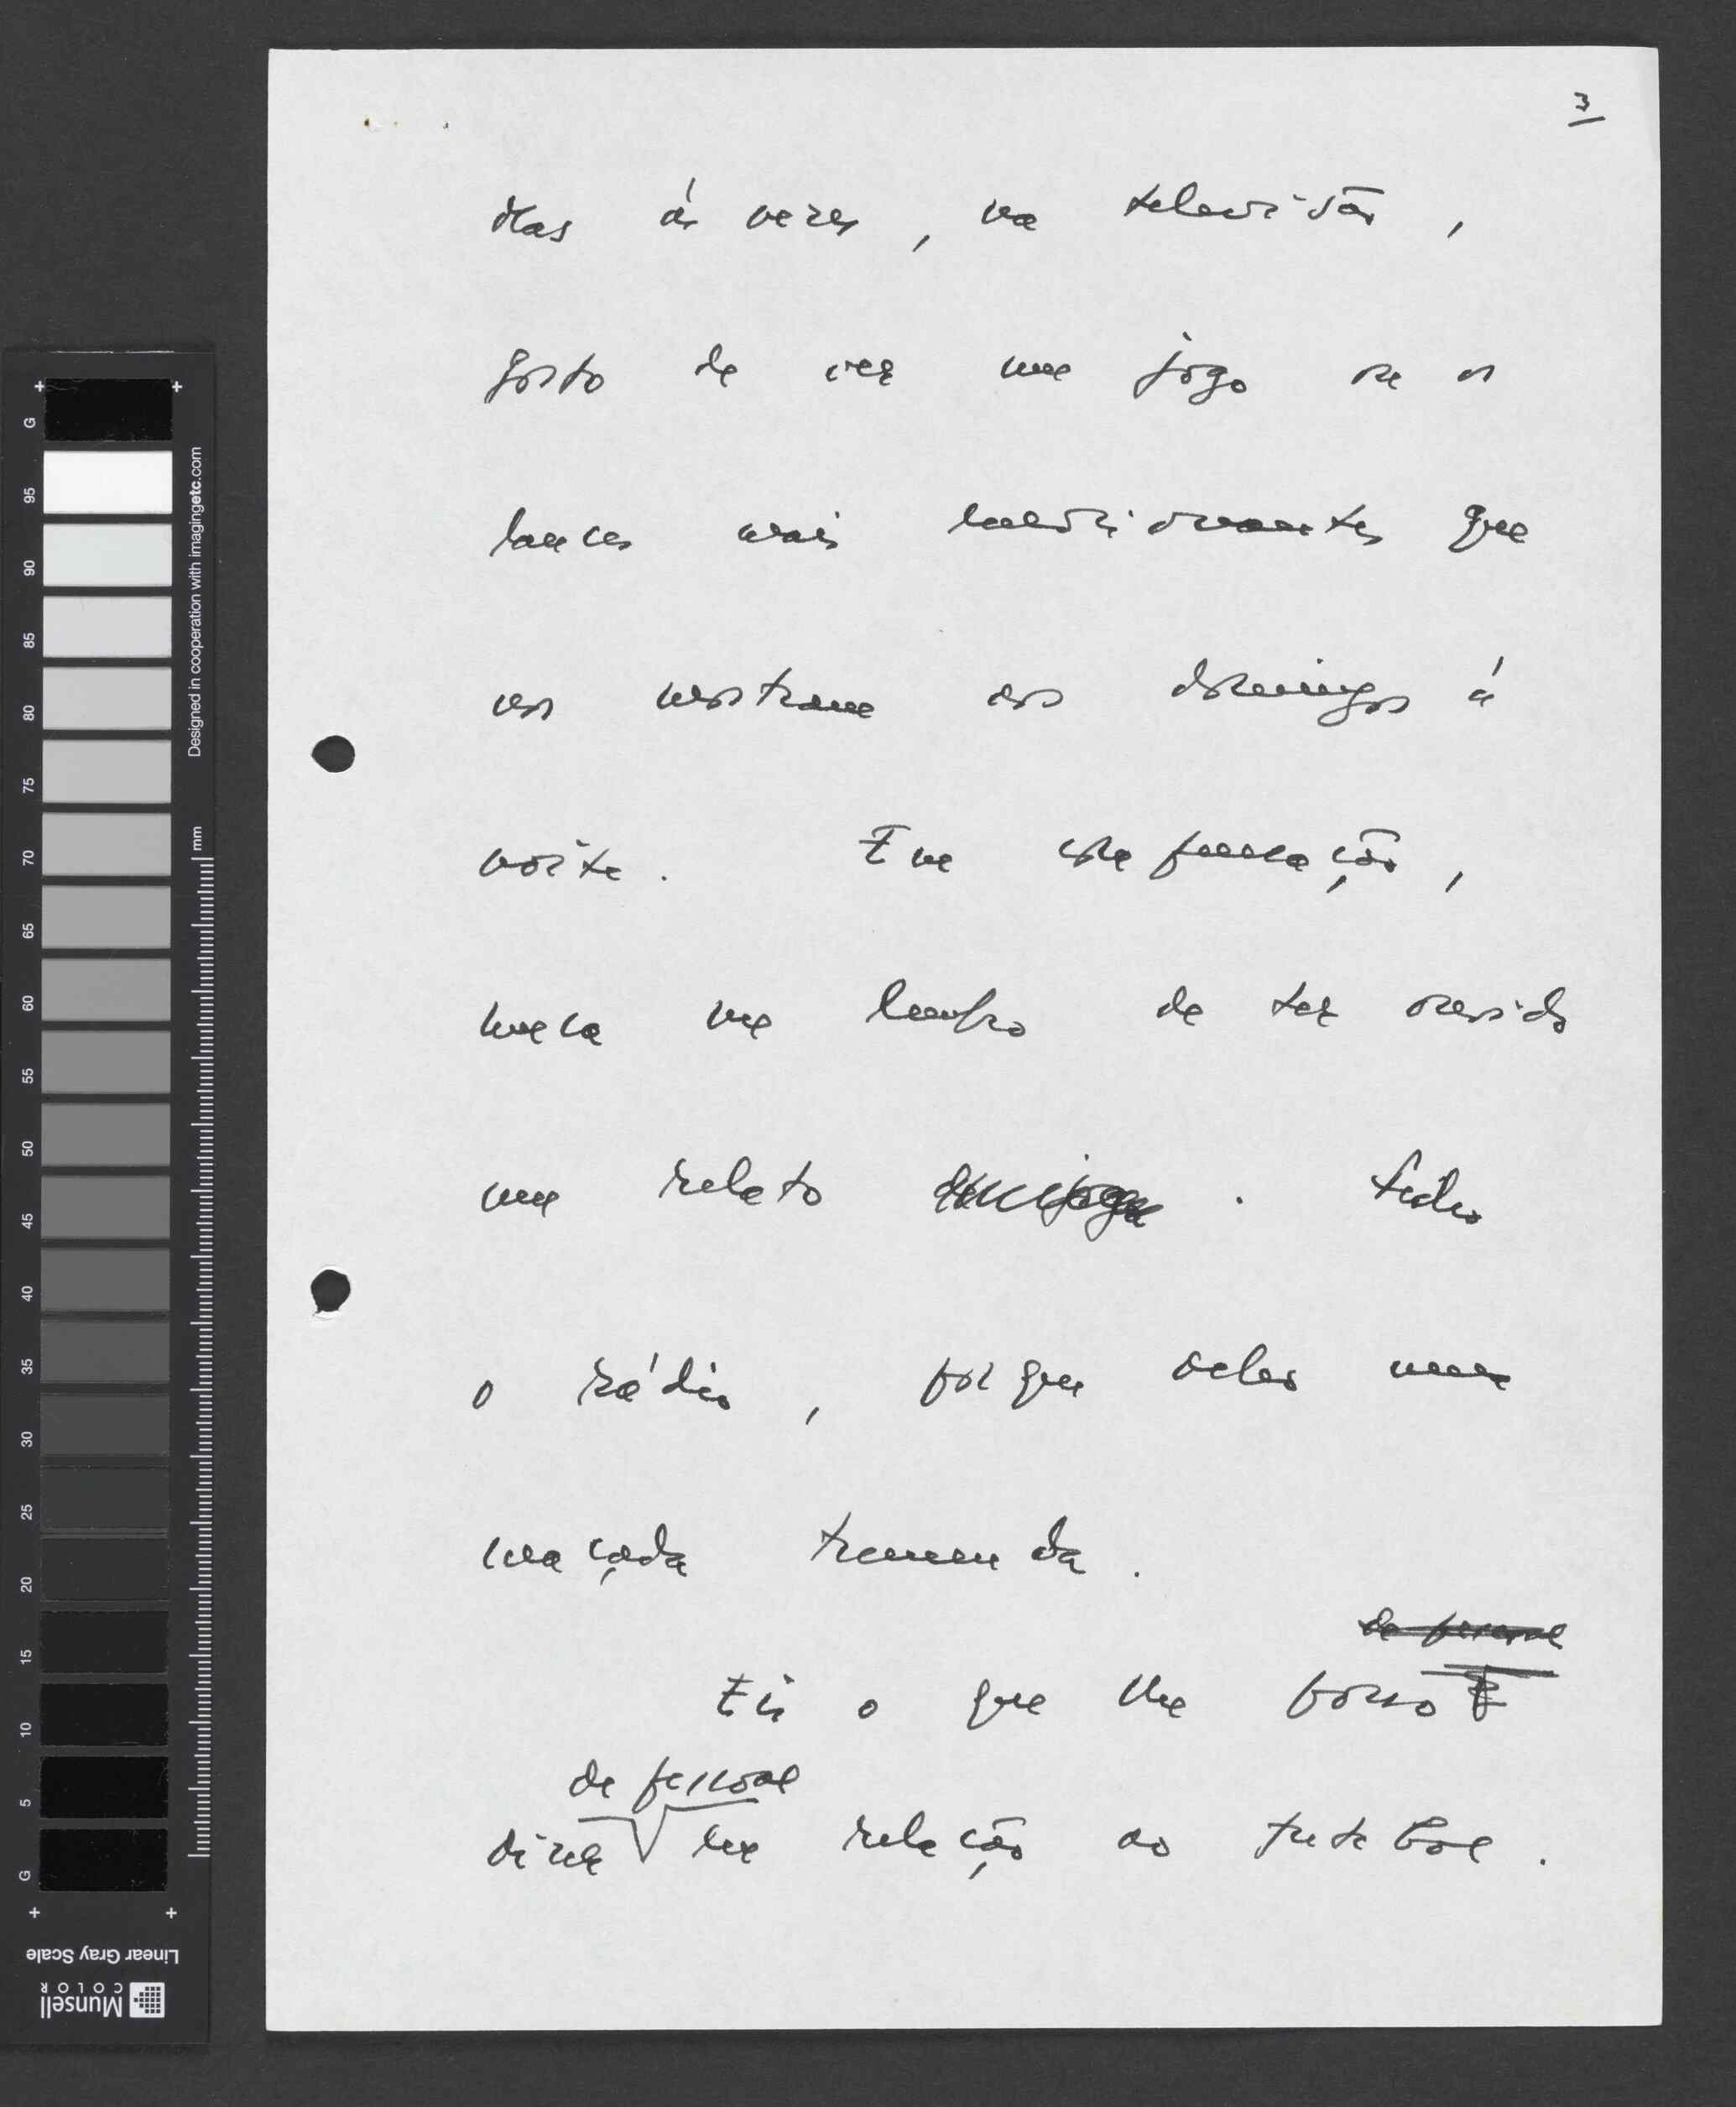 3
Mas ás vezes, na televisão,
gosto de ver um jogo ou os
lances mais emocionantes que
nos mostram aos domingos á
noite. Em compensação,
nunca me lembro de ter ouvido
um relato de um jogo. Fecho
o rádio, porque acho uma
maçada tremenda.
de pessoal
Eis o que lhe posso
de pessoal
dizer em relação ao futebol.
G
95
90
85
80
75
70
65
60
55
50
45
40
35
30
25
20
15
10
5
G
Designed in cooperation with imagingetc.com
mm
Linear Gray Scale
Munsell
COLOR